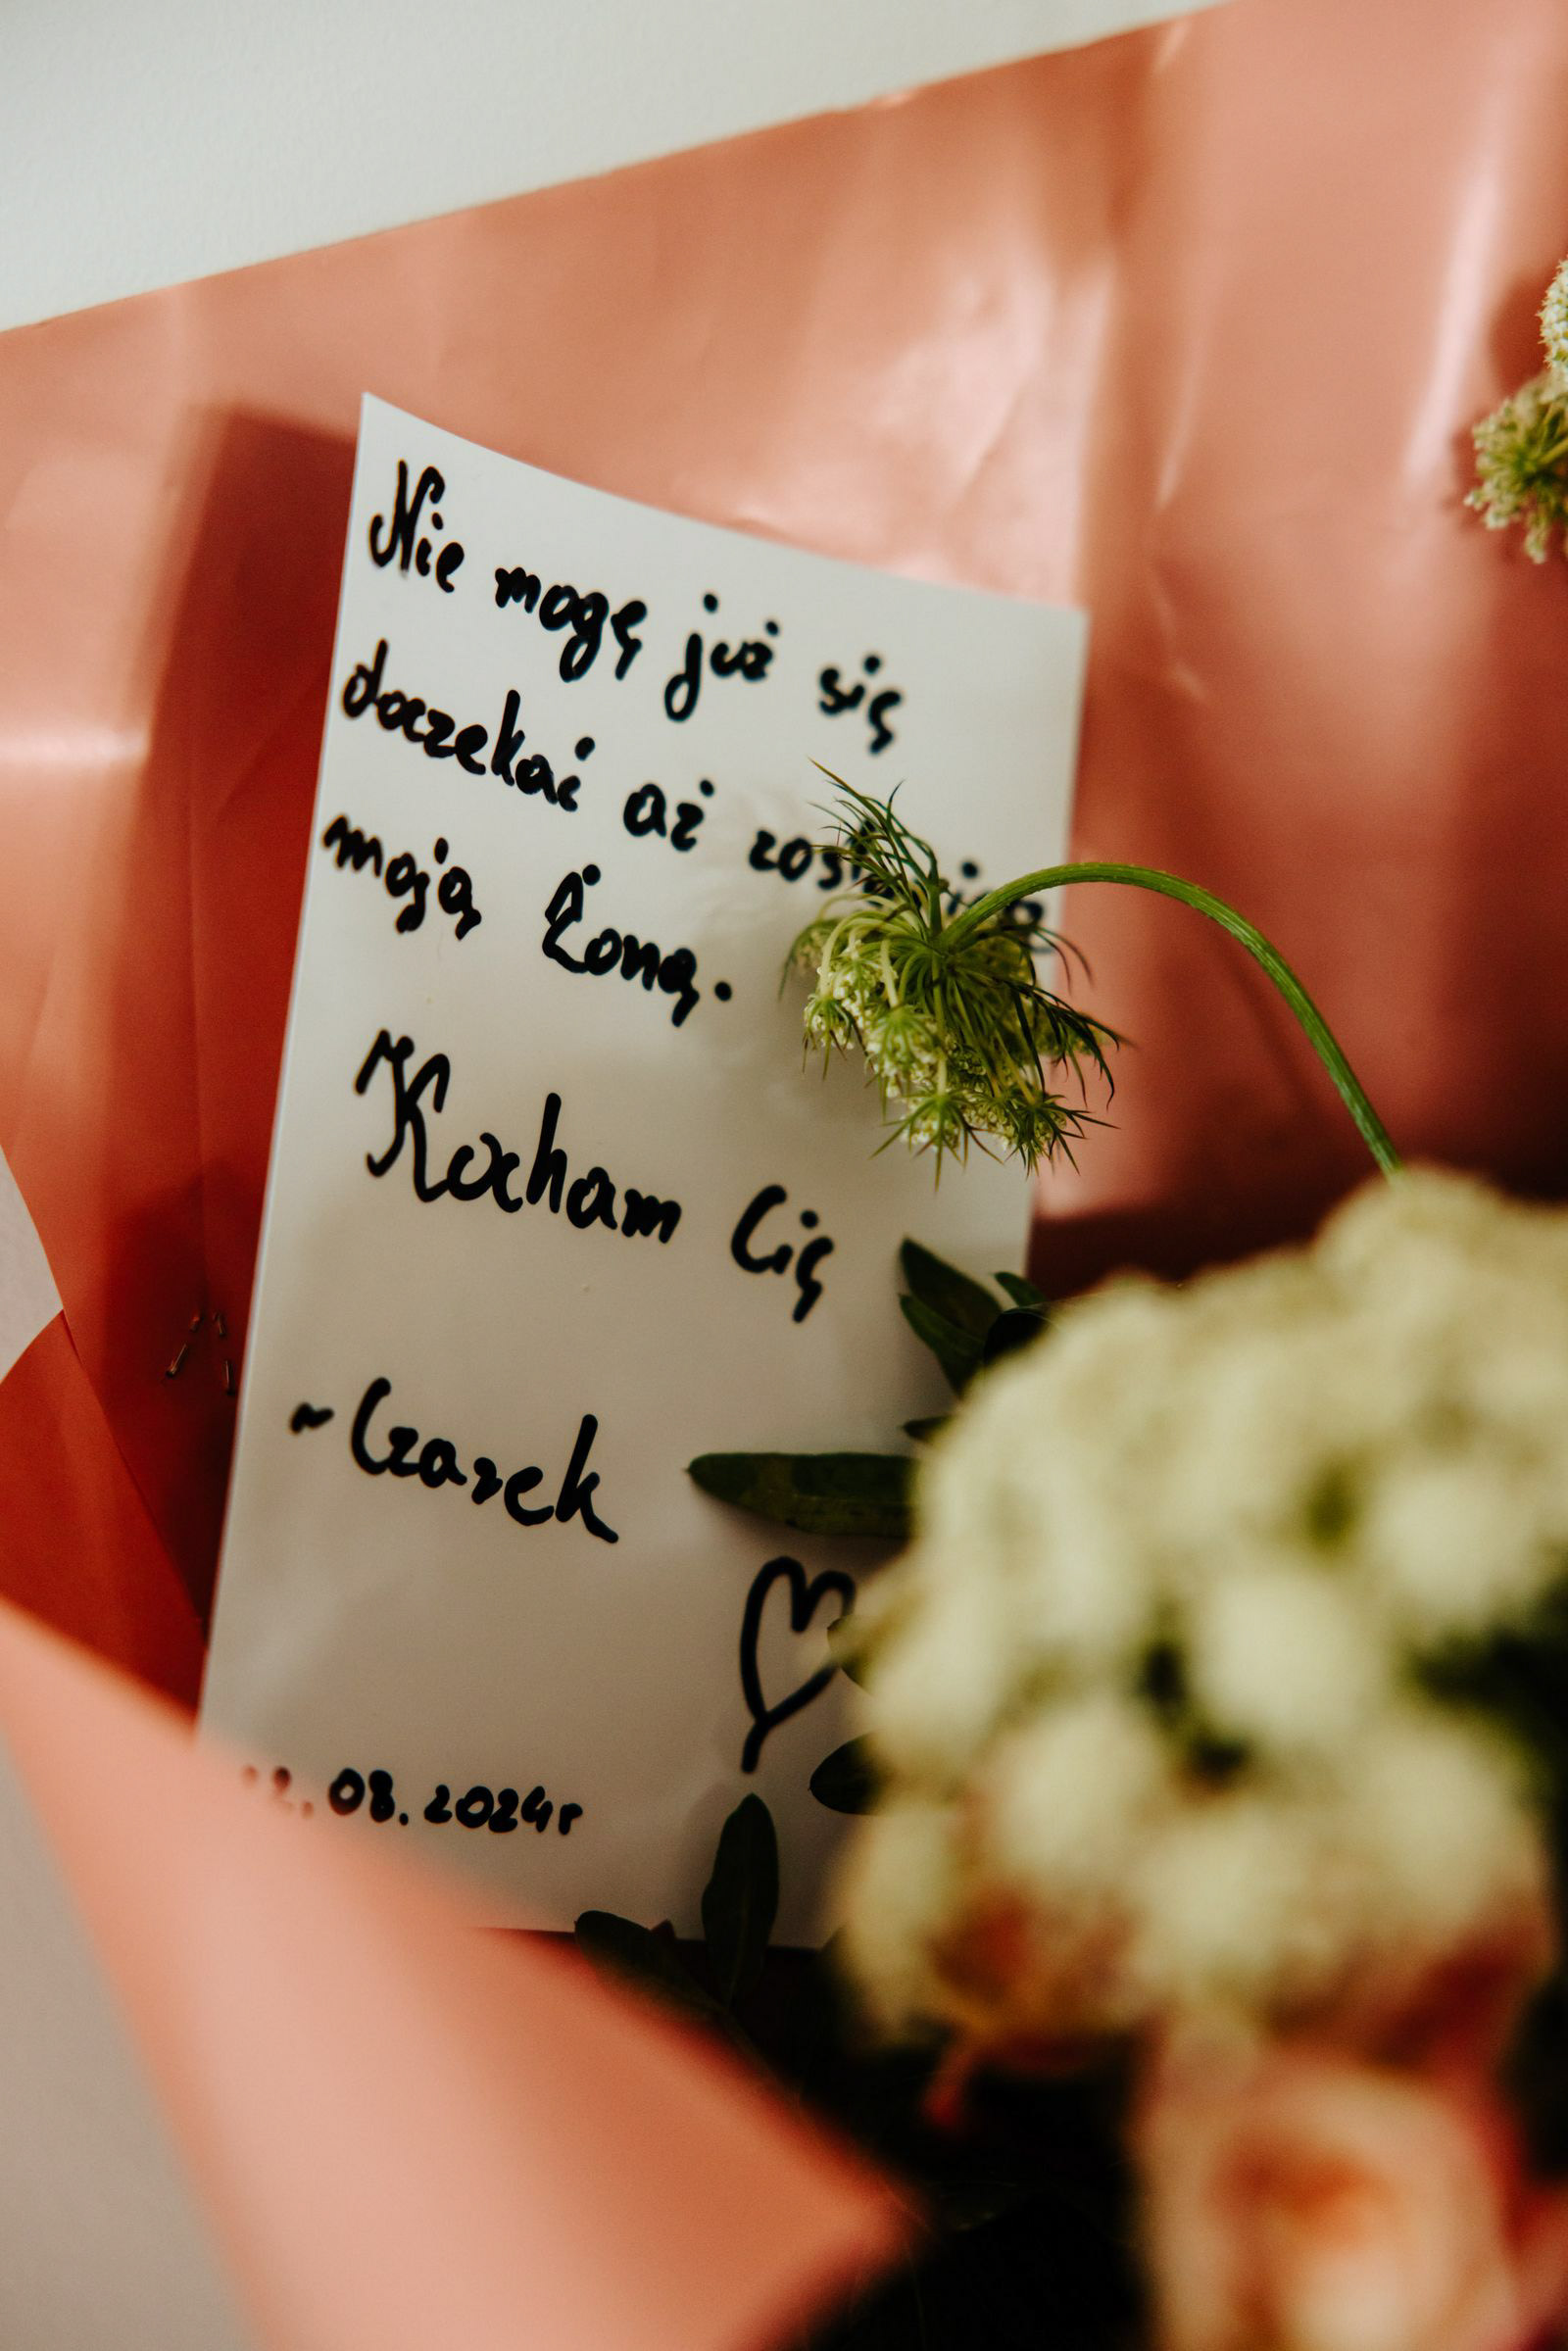 Nie mogę już się
doczekać aż
moją Żoną.
Kocham Cię
~Czarek
08.2024r